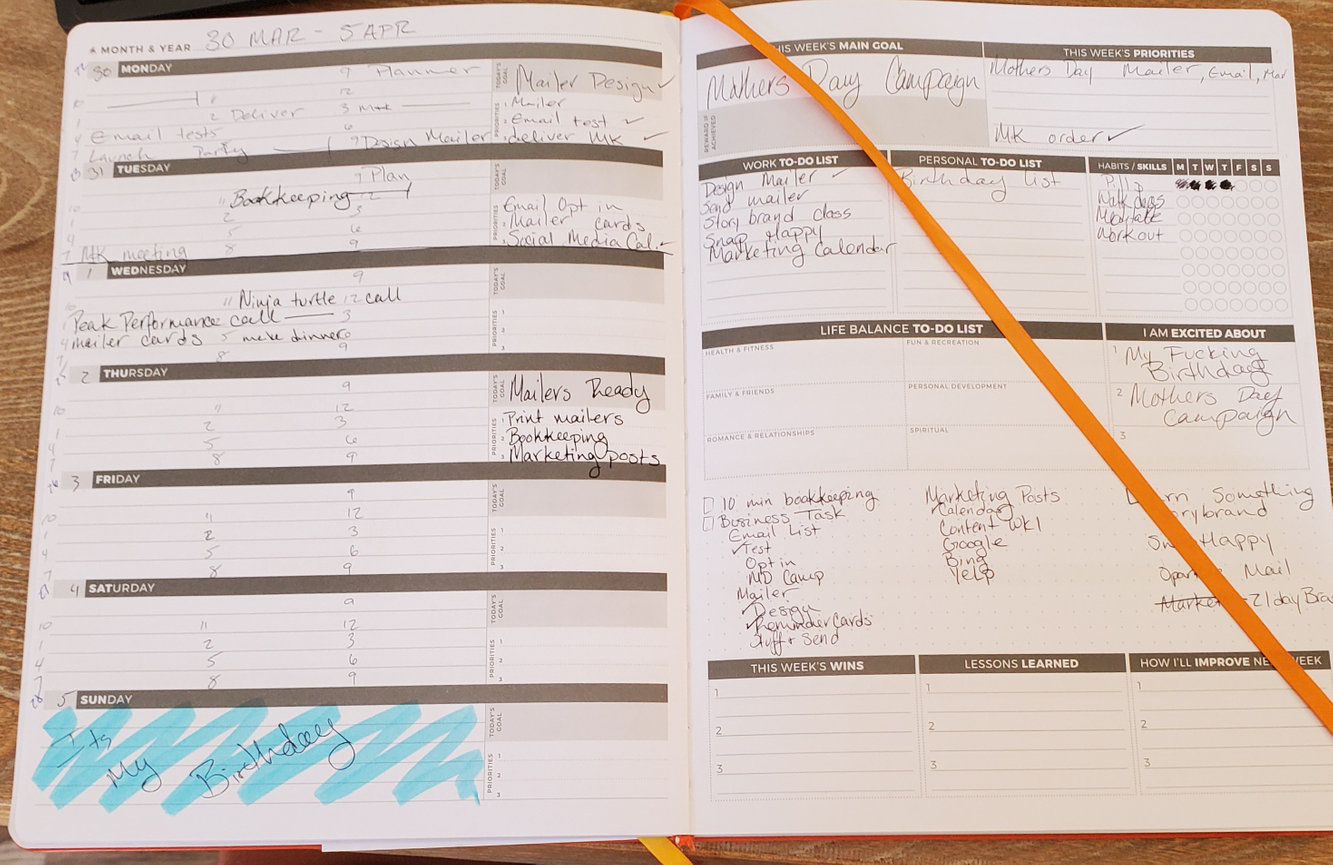 MONTH & YEAR 30 MAR - 5 APR
30 MONDAY
9 Planner
12
2 Deliver 3
Email tests 6
Launch Party 9 Design Mailer
TODAY'S GOAL
Mailer Design ✓
PRIORITIES
1 Mailer
2 Email test ✓
3 deliver MK ✓
31 TUESDAY
9 Plan
11 Bookkeeping 12
2 3
5 6
MK meeting 8 9
TODAY'S GOAL
PRIORITIES
Email Opt in
Mailer cards
Social Media Cal. ✓
1 WEDNESDAY
9
11 Ninja turtle 12 call
Peak Performance call 3
4 mailer cards 5 make dinner
8 9
TODAY'S GOAL
PRIORITIES
1
2
3
2 THURSDAY
9
10 11 12
1 2 3
4 5 6
7 8 9
TODAY'S GOAL
Mailers Ready
PRIORITIES
1 Print mailers
2 Bookkeeping
3 Marketing posts
3 FRIDAY
9
10 11 12
1 2 3
4 5 6
7 8 9
TODAY'S GOAL
PRIORITIES
1
2
3
4 SATURDAY
9
10 11 12
1 2 3
4 5 6
7 8 9
TODAY'S GOAL
PRIORITIES
1
2
3
5 SUNDAY
Its
My Birthday
TODAY'S GOAL
PRIORITIES
1
2
3
THIS WEEK'S MAIN GOAL
Mothers Day Campaign
REWARD IF ACHIEVED
THIS WEEK'S PRIORITIES
Mothers Day Mailer, Email,
MK order ✓
WORK TO-DO LIST
Design Mailer ✓
Send mailer
Story brand class
Snap Happy
Marketing Calendar
PERSONAL TO-DO LIST
Birthday list
HABITS / SKILLS M T W T F S S
Pill
Walk dogs
Meditate
Workout
LIFE BALANCE TO-DO LIST
HEALTH & FITNESS FUN & RECREATION
FAMILY & FRIENDS PERSONAL DEVELOPMENT
ROMANCE & RELATIONSHIPS SPIRITUAL
I AM EXCITED ABOUT
1 My Fucking
Birthday
2 Mothers Day
Campaign
3
10 min bookkeeping
Business Task
Email List
✓ Test
Opt in
MD Camp
Mailer
✓ Design
✓ Reminder Cards
Stuff + Send
Marketing Posts
✓ Calendar
Content wk1
Google
Bing
Yelp
Something
Happy
Mail
21 day
THIS WEEK'S WINS
1
2
3
LESSONS LEARNED
1
2
3
HOW I'LL IMPROVE WEEK
1
2
3